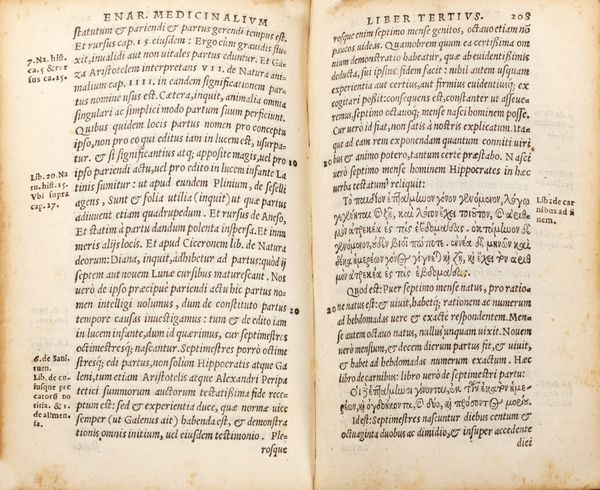 ENAR. MEDICINALIVM
statutum & pariendi & partus gerendi tempus est.
Et rursus cap. 15. eiusdem: Ergo cùm grauidis flu-
xit, inualidi aut non uitales partus eduntur. Et Ga-
za Aristotelem interpretans VII. de Natura ani-
malium cap. IIII. in eandem significationem par-
tus nomine usus est. Cætera, inquit, animalia omnia
singulari ac simplici modo partum suum perficiunt.
Quibus quidem locis partus nomen pro conceptu
ipso, non pro eo qui editus iam in lucem est, usurpa-
tur. & si significantius atq; apposite magis, uel pro
ipso pariendi actu, uel pro edito in lucem infante La
tinis sumitur: ut apud eundem Plinium, de seselli
agens, Sunt & folia utilia (inquit) ut quæ partus
adiuuent etiam quadrupedum. Et rursus de Aneso,
Et statim à partu dandum polenta inspersa. Et innu
meris alijs locis. Et apud Ciceronem lib. de Natura
deorum: Diana, inquit, adhibetur ad partus: quòd ij
septem aut nouem Lunæ cursibus maturescant. Nos
uerò de ipso præcipuè pariendi actu hîc partus no-
men intelligi uolumus, dum de constituto partus
tempore causas inuestigamus: tum & de edito iam
in lucem infante, dum id quærimus, cur septimestres
octimestresq; nascantur. Septimestres porrò octime
stresq; edi partus, non solùm Hippocratis atque Ga
leni, tum etiam Aristotelis atque Alexandri Peripa
tetici summorum auctorum testatissima fide rece-
ptum est: sed & experientia duce, quæ normæ uice
semper (ut Galenus ait) habenda est, & demonstra
tionis omnis initium, uel eiusdem testimonio. Ple-
rosque
7. Na. hist.
ca. 5 & rur
sus ca. 15.
Lib. 20. Na
tu. hist. 15.
Vbi supra
cap. 17.
6. de Sani.
tuen.
Lib. de cu-
iusque pec
catorũ no
titia. & 1.
de alimen.
fa.
10
20
LIBER TERTIVS. 208
rosque enim septimo mense genitos, octauo etiam nõ
paucos uideas. Quamobrem quum ea certissima om
nium demonstratio habeatur, quæ ab euidentissimis
deducta, sui ipsius fidem facit: nihil autem usquam
experientia aut certius, aut firmius euidentiusq; ex
cogitari possit: consequens est, constanter ut asseue-
remus, septimo octauoq; mense nasci hominem posse.
Cur uerò id fiat, non satis à nostris explicatum. Ita-
que ad eam rem exponendam quantum conniti uiri
bus & animo potero, tantum certe præstabo. Nasci
uerò septimo mense hominem Hippocrates in hæc
uerba testatum reliquit:
Τὸ παιδίον ἑπτάμηνον γόνον γενόμενον, λόγῳ
γεγένηται καὶ ζῇ, καὶ λόγον ἔχει τοιοῦτον, καὶ ἀριθ-
μὸν ἀτρεκέα ἐς τὰς ἑβδομάδας. ὀκτάμηνον δὲ
γενόμενον, οὐδὲν βιοῖ πώποτε. ἐννέα δὲ μηνῶν καὶ
δέκα ἡμερέων γόνος γίνεται, καὶ ζῇ, καὶ ἔχει τὸν ἀριθ
μὸν ἀτρεκέα ἐς τὰς ἑβδομάδας.
Quod est: Puer septimo mense natus, pro ratio-
ne natus est: & uiuit, habetq; rationem ac numerum
ad hebdomadas uere & exactè respondentem. Men-
se autem octauo natus, nullus unquam uixit. Nouem
uerò mensium, & decem dierum partus fit, & uiuit,
& habet ad hebdomadas numerum exactum. Hæc
libro de carnibus: libro uerò de septimestri partu:
Οἱ ἑπτάμηνοι γίνονται, ἐκ τῶν ἑκατὸν ἡμε-
ρέων, καὶ ὀγδοήκοντα, καὶ δύο, καὶ προσεόντος μορίου.
Id est: Septimestres nascuntur diebus centum &
octuaginta duobus ac dimidio, & insuper accedente
diei
10
20
Lib. de car
nibus ad fi
nem.